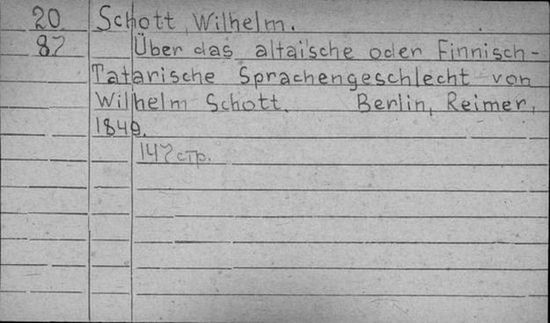 20 Schott, Wilhelm.
87 Über das altaische oder Finnisch-
Tatarische Sprachengeschlecht von
Wilhelm Schott. Berlin, Reimer,
1849.
147 стр.